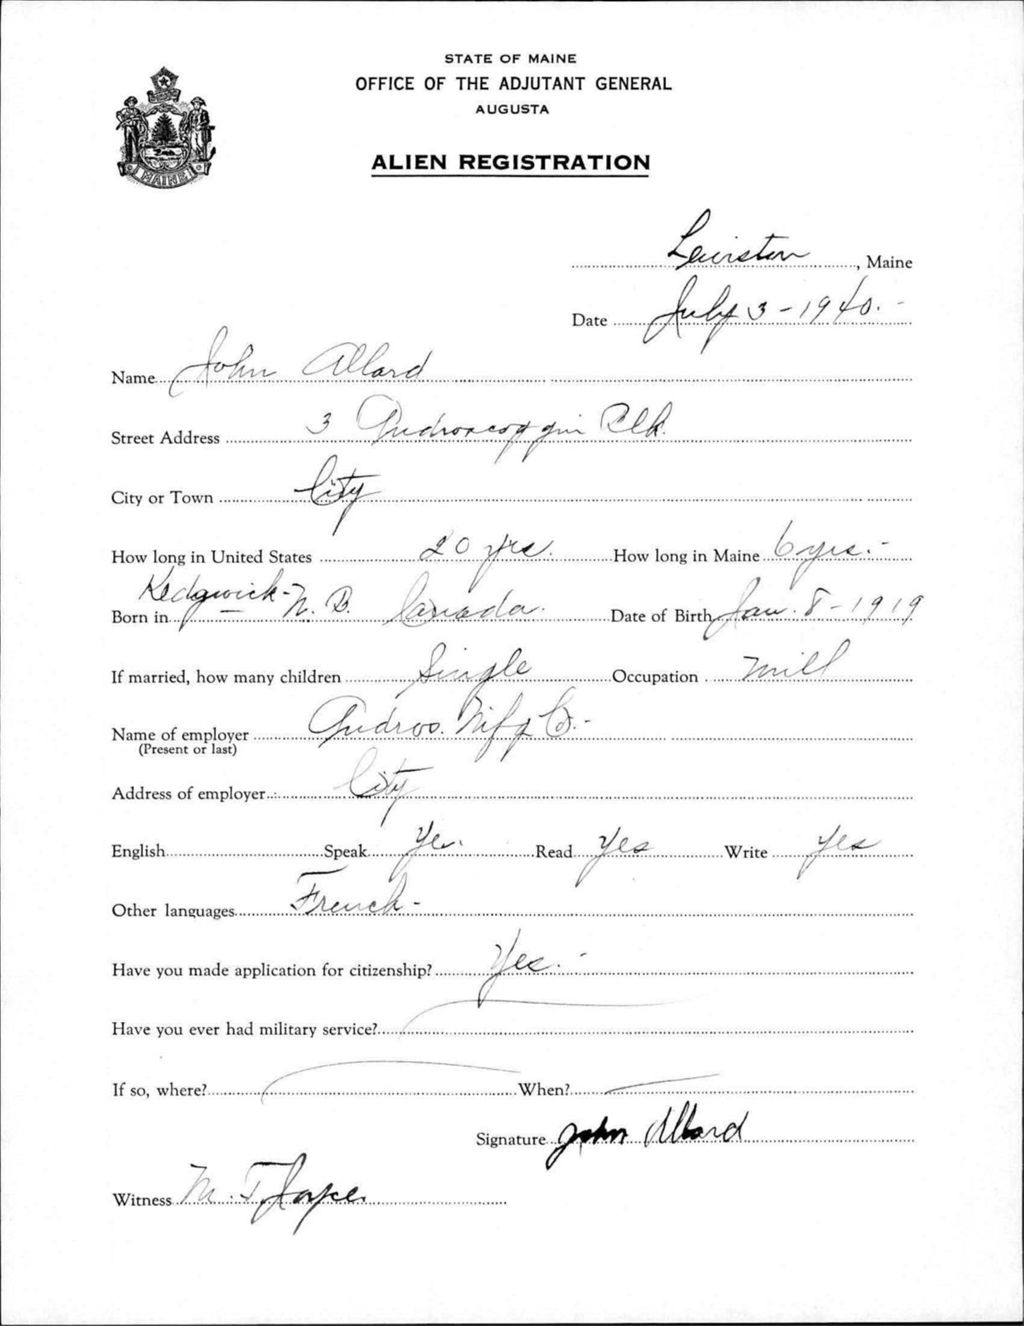 STATE OF MAINE
OFFICE OF THE ADJUTANT GENERAL
AUGUSTA
ALIEN REGISTRATION
MAINE
Lewiston, Maine
Date July 3-1940.-
Name John Allard
Street Address 3 Androscoggin Blk.
City or Town City
How long in United States 20 yrs. How long in Maine 6 yrs.-
Born in Kedgwick-N.B. Canada. Date of Birth Jan. 8-1919
If married, how many children Single Occupation Mill
Name of employer Andros. Mfg Co.-
(Present or last)
Address of employer City
English Speak Yes. Read Yes Write Yes
Other languages French-
Have you made application for citizenship? Yes.-
Have you ever had military service?
If so, where? When?
Signature John Allard
Witness M. T. Joyce.